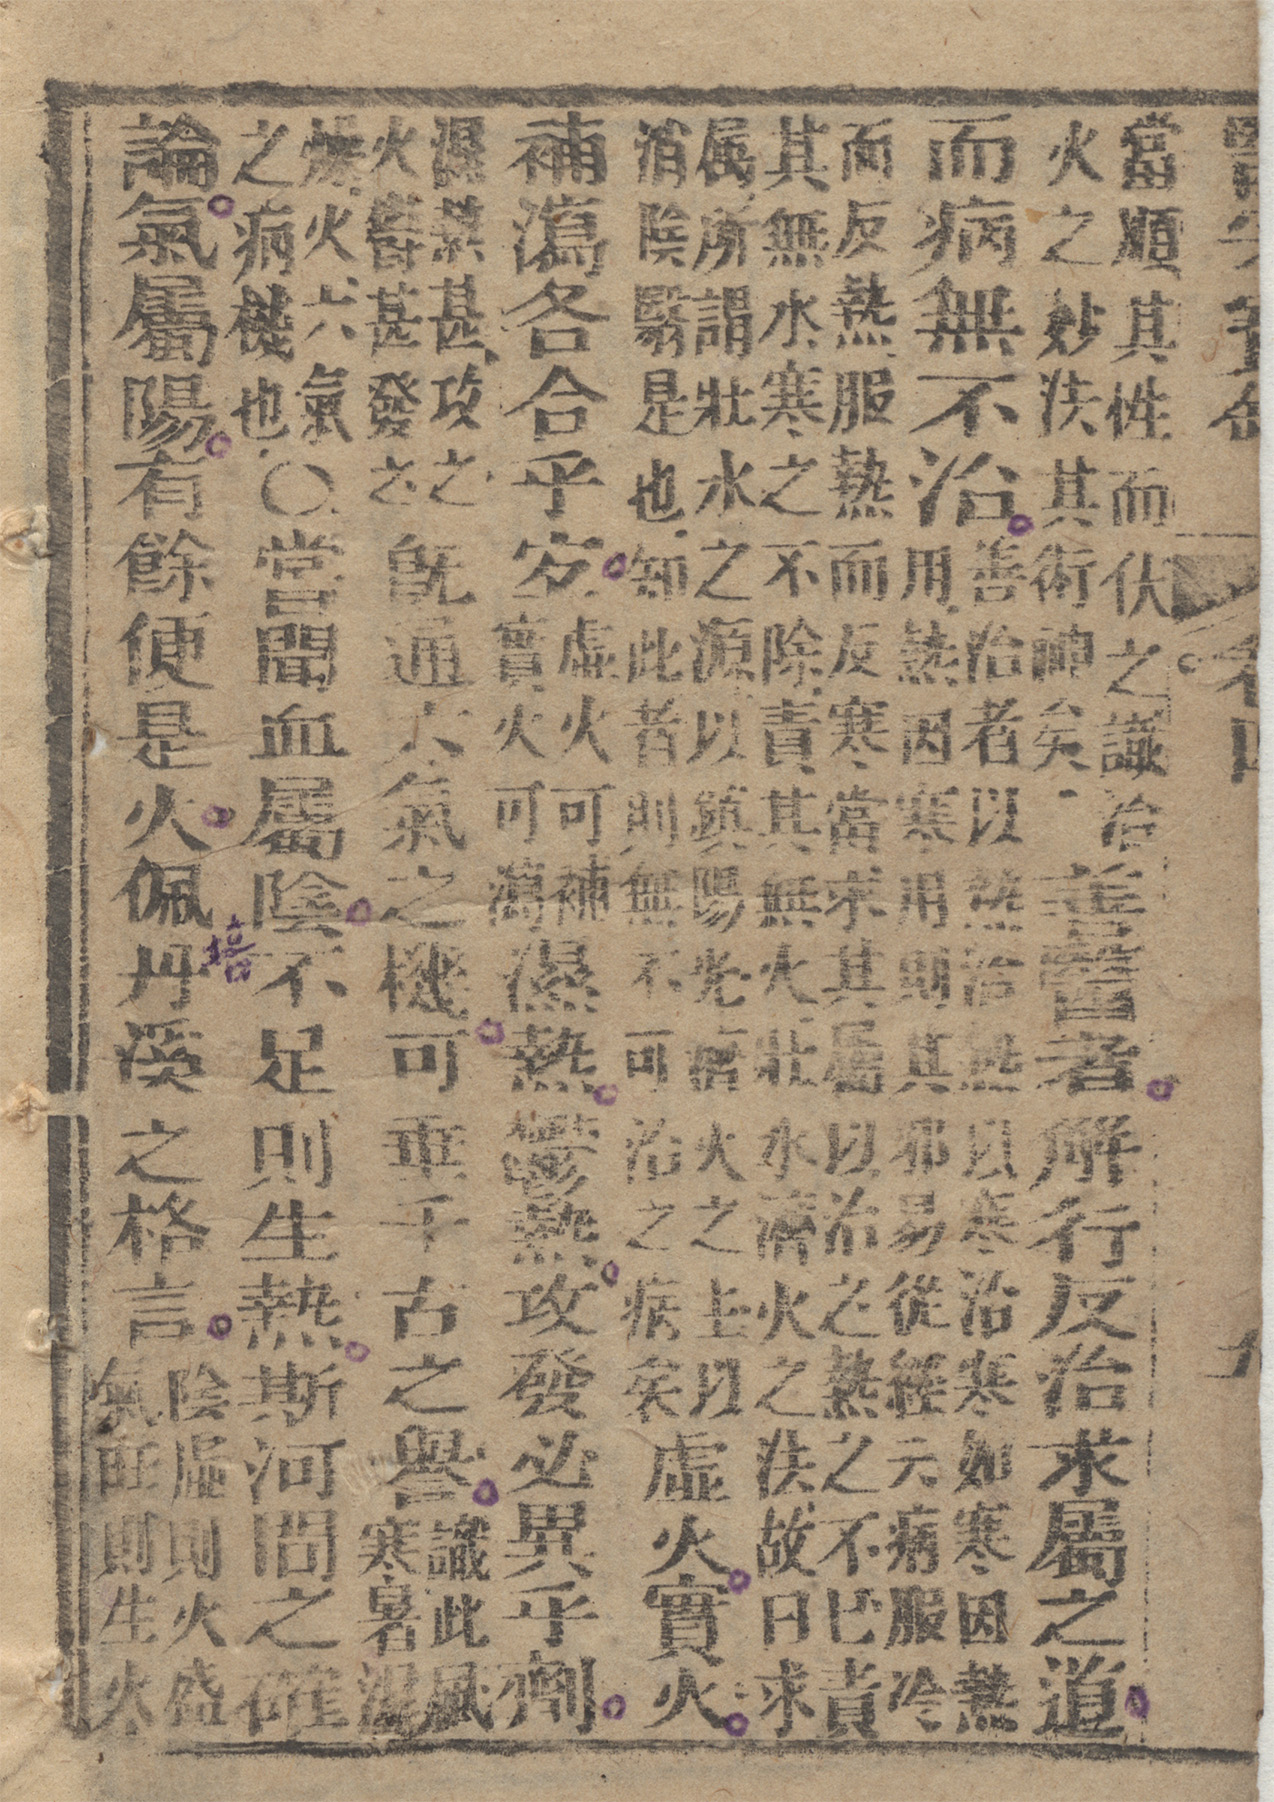 當順其性而伏之識治
火之妙法其術神矣
善醫者解行反治求屬之道
而病無不治
善治者以熱治熱以寒治寒如寒因熱
用熱因寒用則其邪易從經元病服冷
而反熱服熱而反寒當求其屬以治之熱之不已責
其無水寒之不除責其無火壯水濟火之法故曰求
属所謂壯水之源以鎮陽光火之上以
消陰翳是也知此者則無不可治之病矣
虛火實火
補瀉各合乎
虛火可補
實火可瀉
濕熱鬱熱攻發必異乎劑
濕熱甚攻之
火鬱甚發之
既通六氣之機可垂千古之譽
識此風
寒暑濕
燥火六氣
之病機也
○當聞血屬陰不足則生熱斯河間之確
論氣屬陽有餘便是火佩丹溪之格言
陰虛則火盛
氣旺則生火